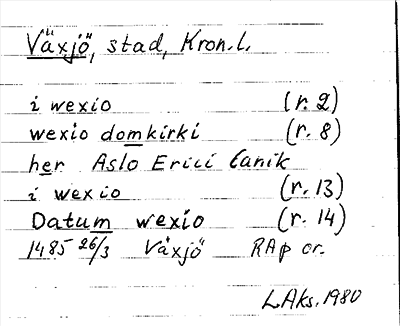 Växjö, stad, Kron.l.
i wexio (r. 2)
wexio domkirki (r. 8)
her Aslo Erici Canik
i wexio (r. 13)
Datum wexio (r. 14)
1485 26/3 Växjö RAp or.
LAks. 1980